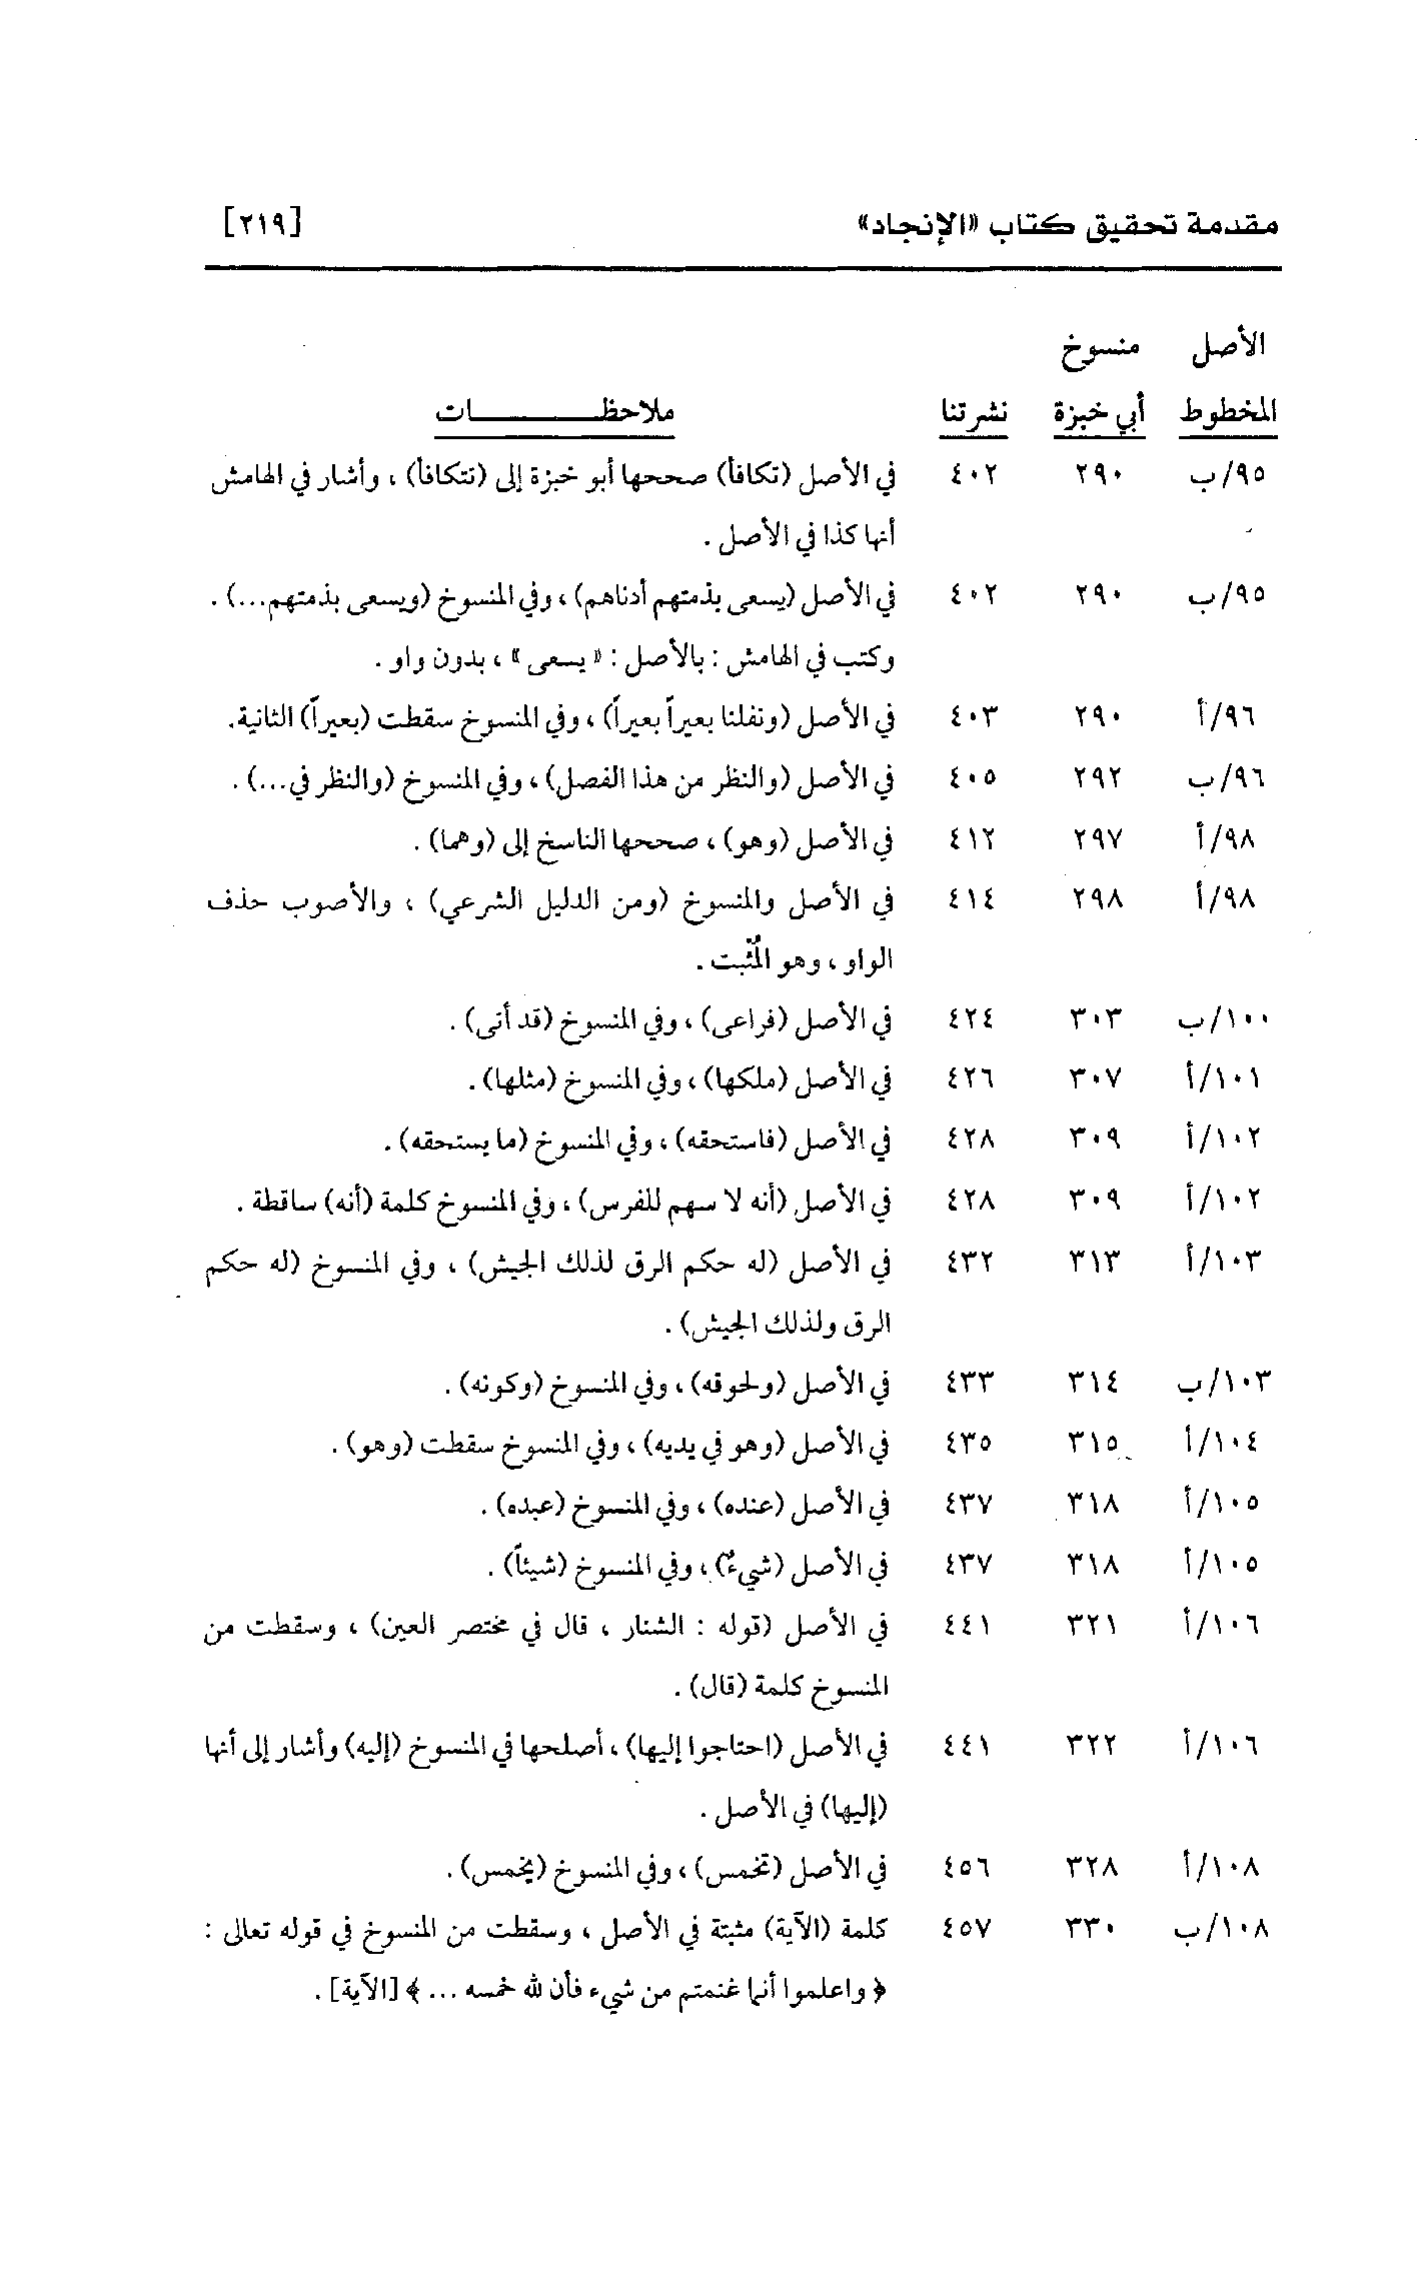 مقدمة تحقيق كتاب «الإنجاد» [٢١٩]
الأصل منسوخ
المخطوط أبي خبزة نشرتنا ملاحظـــــــــــات
٩٥/ب ٢٩٠ ٤٠٢ في الأصل (تكافأ) صححها أبو خبزة إلى (تتكافأ) ، وأشار في الهامش
أنها كذا في الأصل .
٩٥/ب ٢٩٠ ٤٠٢ في الأصل (يسعى بذمتهم أدناهم) ، وفي المنسوخ (ويسعى بذمتهم...) .
وكتب في الهامش : بالأصل : « يسعى » ، بدون واو .
٩٦/أ ٢٩٠ ٤٠٣ في الأصل (ونفلنا بعيراً بعيراً) ، وفي المنسوخ سقطت (بعيراً) الثانية.
٩٦/ب ٢٩٢ ٤٠٥ في الأصل (والنظر من هذا الفصل) ، وفي المنسوخ (والنظر في...) .
٩٨/أ ٢٩٧ ٤١٢ في الأصل (وهو) ، صححها الناسخ إلى (وهما) .
٩٨/أ ٢٩٨ ٤١٤ في الأصل والمنسوخ (ومن الدليل الشرعي) ، والأصوب حذف
الواو ، وهو المُثْبت .
١٠٠/ب ٣٠٣ ٤٢٤ في الأصل (فراعى) ، وفي المنسوخ (قد أتى) .
١٠١/أ ٣٠٧ ٤٢٦ في الأصل (ملكها) ، وفي المنسوخ (مثلها) .
١٠٢/أ ٣٠٩ ٤٢٨ في الأصل (فاستحقه) ، وفي المنسوخ (ما يستحقه) .
١٠٢/أ ٣٠٩ ٤٢٨ في الأصل (أنه لا سهم للفرس) ، وفي المنسوخ كلمة (أنه) ساقطة .
١٠٣/أ ٣١٣ ٤٣٢ في الأصل (له حكم الرق لذلك الجيش) ، وفي المنسوخ (له حكم
الرق ولذلك الجيش) .
١٠٣/ب ٣١٤ ٤٣٣ في الأصل (ولحوقه) ، وفي المنسوخ (وكونه) .
١٠٤/أ ٣١٥ ٤٣٥ في الأصل (وهو في يديه) ، وفي المنسوخ سقطت (وهو) .
١٠٥/أ ٣١٨ ٤٣٧ في الأصل (عنده) ، وفي المنسوخ (عبده) .
١٠٥/أ ٣١٨ ٤٣٧ في الأصل (شيءٌ) ، وفي المنسوخ (شيئاً) .
١٠٦/أ ٣٢١ ٤٤١ في الأصل (قوله : الشنار ، قال في مختصر العين) ، وسقطت من
المنسوخ كلمة (قال) .
١٠٦/أ ٣٢٢ ٤٤١ في الأصل (احتاجوا إليها) ، أصلحها في المنسوخ (إليه) وأشار إلى أنها
(إليها) في الأصل .
١٠٨/أ ٣٢٨ ٤٥٦ في الأصل (تخمس) ، وفي المنسوخ (يخمس) .
١٠٨/ب ٣٣٠ ٤٥٧ كلمة (الآية) مثبتة في الأصل ، وسقطت من المنسوخ في قوله تعالى :
﴿ واعلموا أنما غنمتم من شيء فأن لله خمسه ... ﴾ [الآية] .